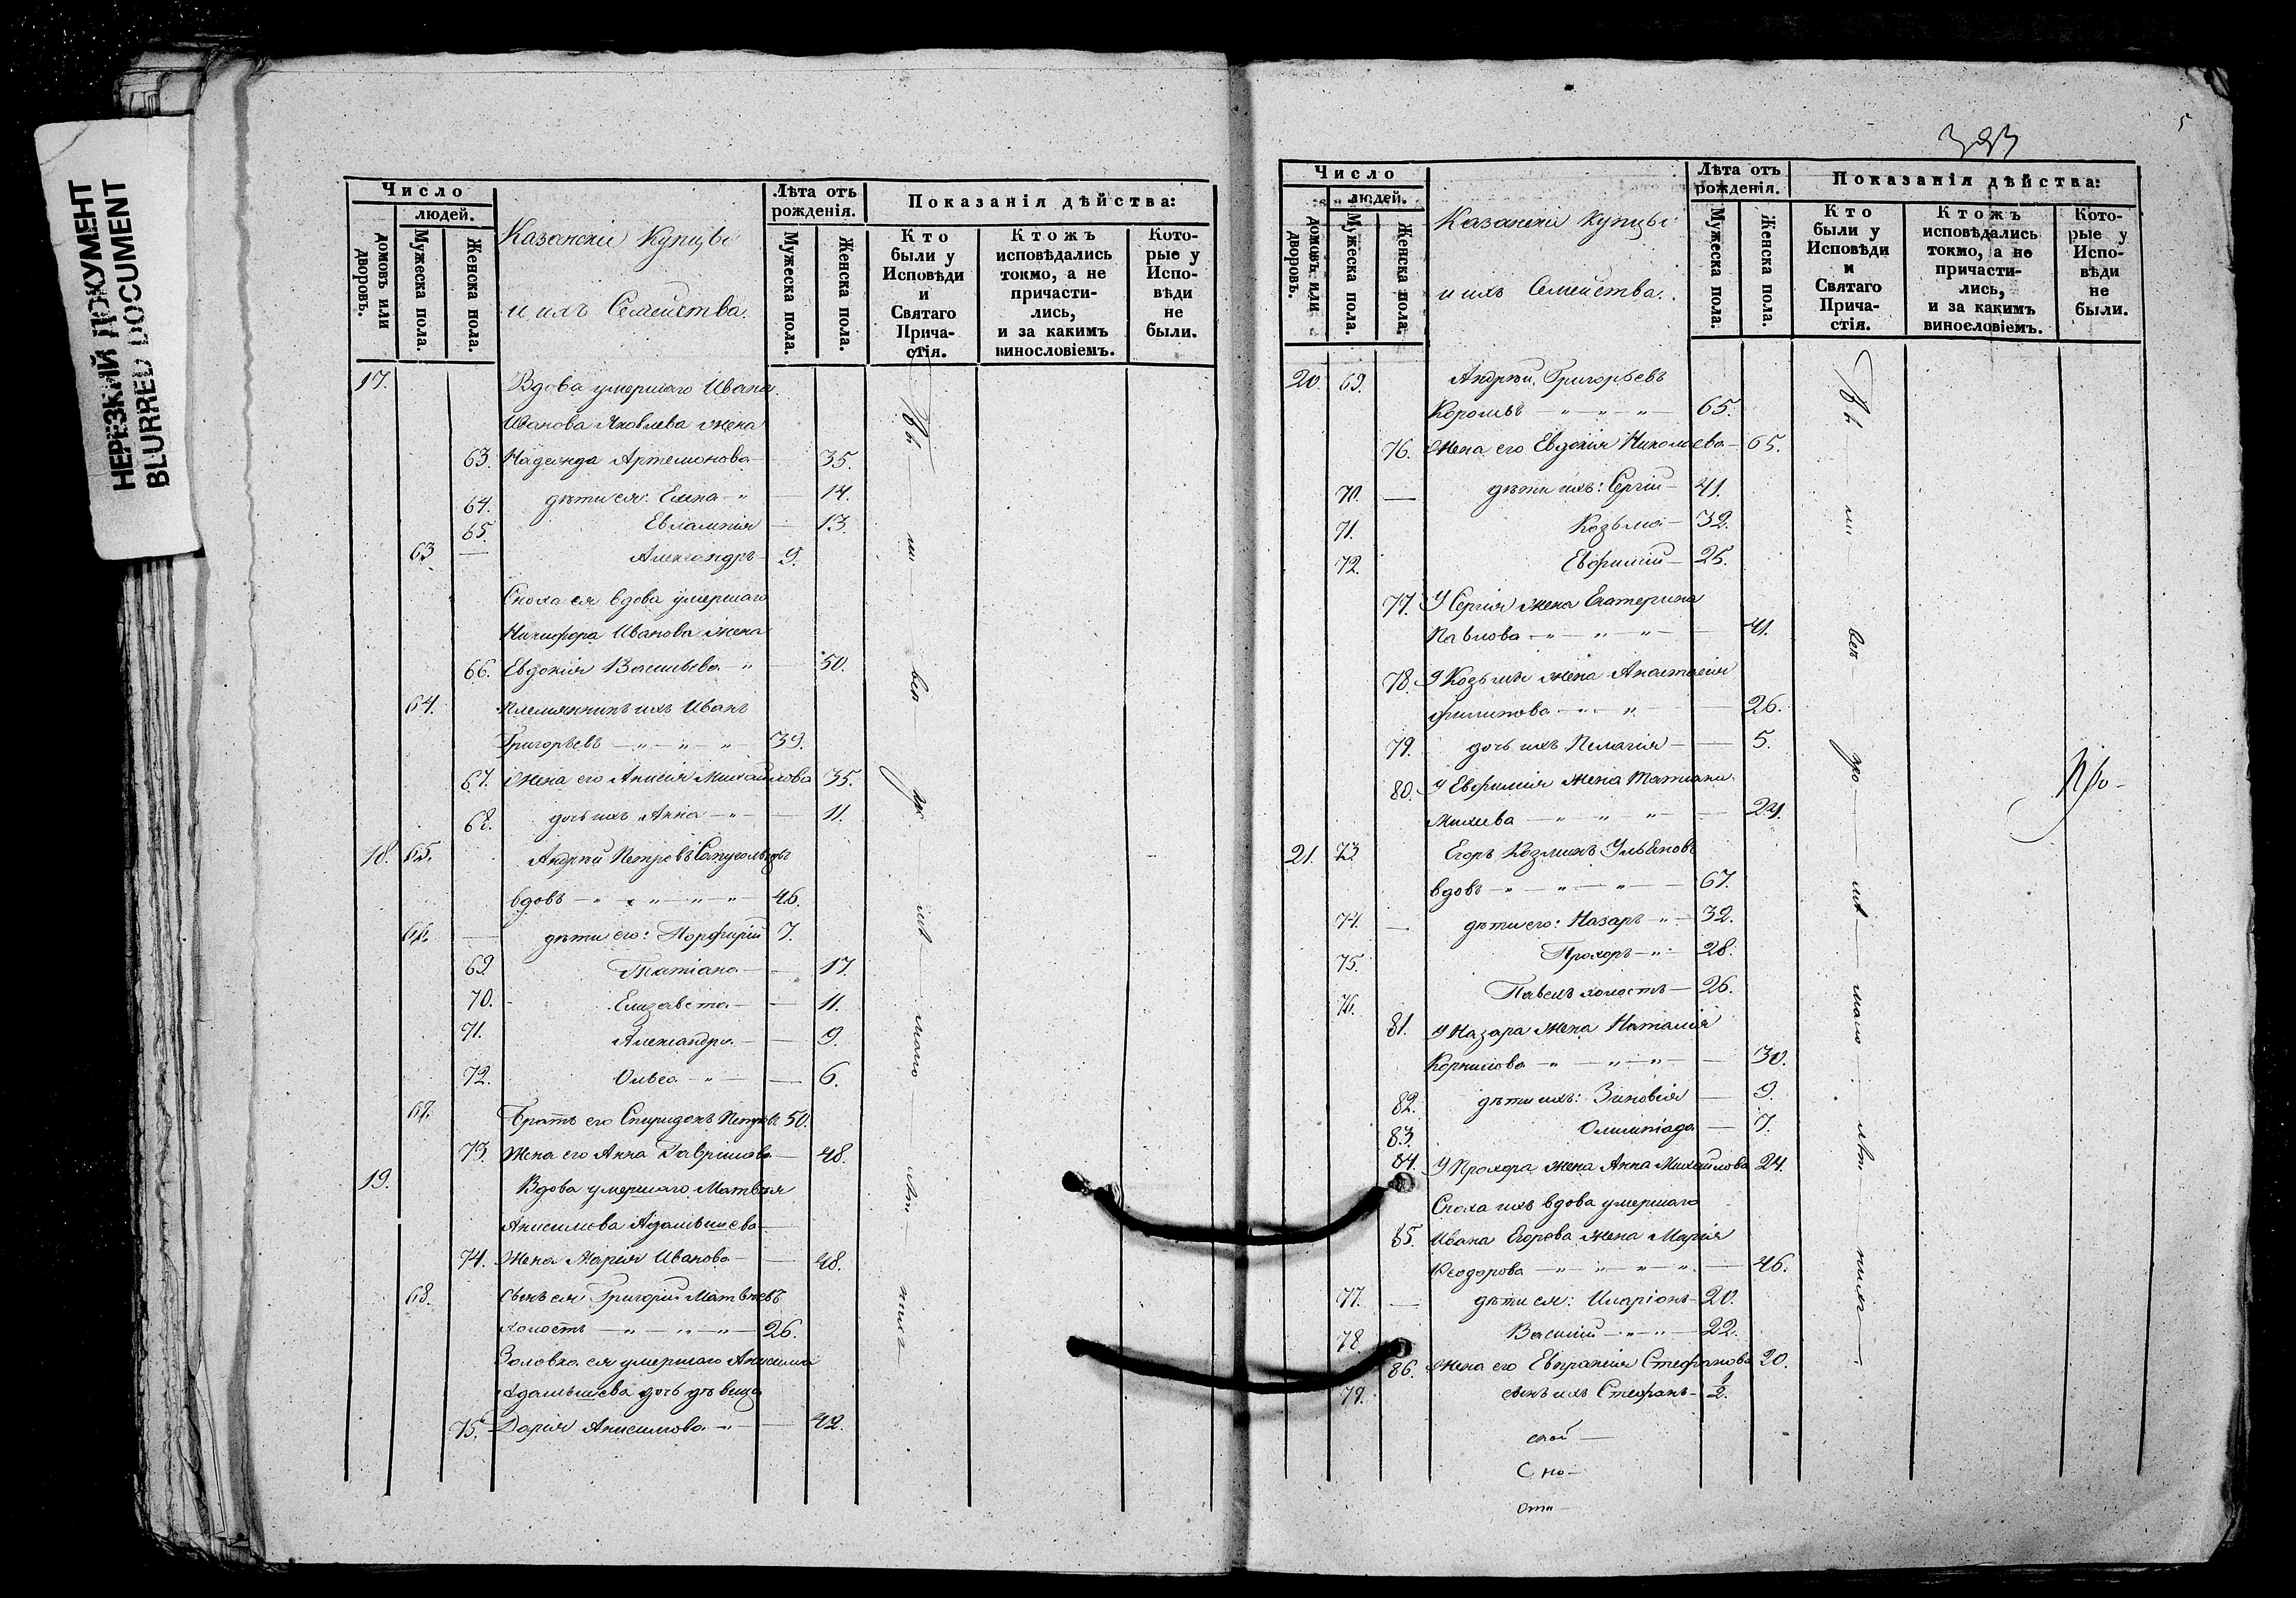 НЕРЕЗКИЙ ДОКУМЕНТ
BLURRED DOCUMENT
Число
людей.
домовъ или дворовъ.
Мужеска пола.
Женска пола.
Казанскіе Купцы
и ихъ Семейства.
Лѣта отъ рожденія.
Мужеска пола.
Женска пола.
Показанія дѣйства:
Кто были у Исповѣди и Святаго Прича-стія.
Ктожъ исповѣдались токмо, а не причасти-лись, и за какимъ винословіемъ.
Кото-рые у Испо-вѣди не были.
17. Вдова умершаго Ивана
Иванова Яковлева жена
63. Надежда Артемонова — 35.
64. дѣти ея: Елена — " — 14.
65. Евлампія — 13
63 — Александръ — 9.
Сноха ея вдова умершаго
Никифора Иванова жена
66. Евдокія Васильева — " — 50.
64. Племянникъ ихъ Иванъ
Григорьевъ — " — " — " — 39.
67. Жена его Анисія Михайлова 35.
68. дочь ихъ Анна — " — 11.
18. 65. Андрей Петровъ
вдовъ — " — " — " — " — 46.
66. — дѣти его: Порфирій 7.
69. Татіана — 17.
70. Елизавета — 11.
71. Александра — 9.
72. Ольга — " — 6.
67. Братъ его Спиридонъ Петровъ 50.
73. Жена его Анна Гаврилова — 48.
19. Вдова умершаго Матвѣя
Анисимова Адамышева —
74. Жена Марія Иванова — 48.
68. Сынъ ея Григорій Матвѣевъ
холостъ — " — " — " — 26.
Золовка ея умершаго Анисима
Адамышева дочь дѣвица
75. Дарія Анисимова — " — 42.
Вы — ли — вся — ше — мало — лѣт — нія —
5
393
Число
людей.
домовъ или дворовъ.
Мужеска пола.
Женска пола.
Казанскіе Купцы
и ихъ Семейства.
Лѣта отъ рожденія.
Мужеска пола.
Женска пола.
Показанія дѣйства:
Кто были у Исповѣди и Святаго Прича-стія.
Ктожъ исповѣдались токмо, а не причасти-лись, и за какимъ винословіемъ.
Кото-рые у Испо-вѣди не были.
20 69. Андрей Григорьевъ
Королевъ — " — " — " — 65.
76. Жена его Евдокія Николаева — 65.
70. — дѣти ихъ: Сергій — 41.
71. Козьма — 32.
72. Евфимій — 25.
77. У Сергія жена Екатерина
Павлова — " — " — " — 41.
78. У Козьмы жена Анастасія
Филипова — " — " — 26.
79. дочь ихъ Пелагія — 5.
80. У Евфимія жена Татіана
Михеева — " — " — " — 24.
21. 73 Егоръ Козминъ Ульяновъ
вдовъ — " — " — " — 67.
74. — дѣти его: Назаръ — " — 32.
75. Прохоръ — " — 28.
76. Павелъ холостъ — 26.
81. У Назара жена Наталія
Корнилова — " — " — " — 30.
82. дѣти ихъ: Зиновія — 9.
83. Олимпіада — 7.
84. У Прохора жена Анна Михайлова 24.
Сноха ихъ вдова умершаго
85. Ивана Егорова жена Марія
Ѳеодорова — " — " — " — " — 46.
77. — дѣти ея: Иларіонъ — 20.
78. Василій — " — " — 22.
86. Жена его Евпраксія Стефанова 20.
79. сынъ ихъ Стефанъ — 1/2.
Вы — ли — вся — про — ше — мало — лѣт — нія —
Про-
ской —
Сно —